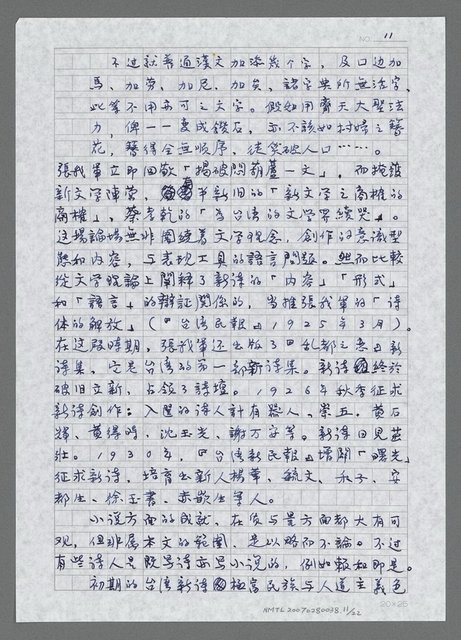 NO. 11
不过就普通漢文加添幾个字，及口边加
馬、加劳、加尼、加矣，諸字典所無活字，
此等不用亦可之文字。假如用齊天大聖法
力，俾一一变成鑽石，亦不該如村婦之簪
花，簪得全無順序，徒笑破人口……。
張我軍立即回敬「揭破悶葫蘆」一文，而掩護
新文学陣营，半新旧的「新文学之商榷的
商榷」，蔡孝乾的「為台湾的文学界續哭」。
这場論場無非圍繞着文学观念，創作的意識型
態和内容，与表现工具的語言問題。然而比較
從文学观論上闡释了新詩的「内容」「形式」
和「語言」的辯証関係的，當推張我軍的「詩
体的解放」（『台湾民報』1925年3月）。
在这段時期，張我軍还出版了『乱都之恋』新
詩集，它是台湾的第一部新詩集。新詩終於
破旧立新，占領了詩壇。1926年秋季征求
新詩創作；入選的詩人計有器人、崇五、黄石
輝、黄得時、沈玉光、謝万安等。新詩日見茁
壮。1930年，『台湾新民報』增闢「曙光」
征求新詩，培育出新人楊華、毓文、禾子、安
都生、徐玉書、赤歌生等人。
小说方面的成就，在質与量方面都大有可
观，但非属本文的範圍，是以略而不論。不过
有些詩人是既写詩亦写小说的，例如賴和即是。
初期的台湾新詩極富民族与人道主義色
NMTL20070280038.11/22
20×25